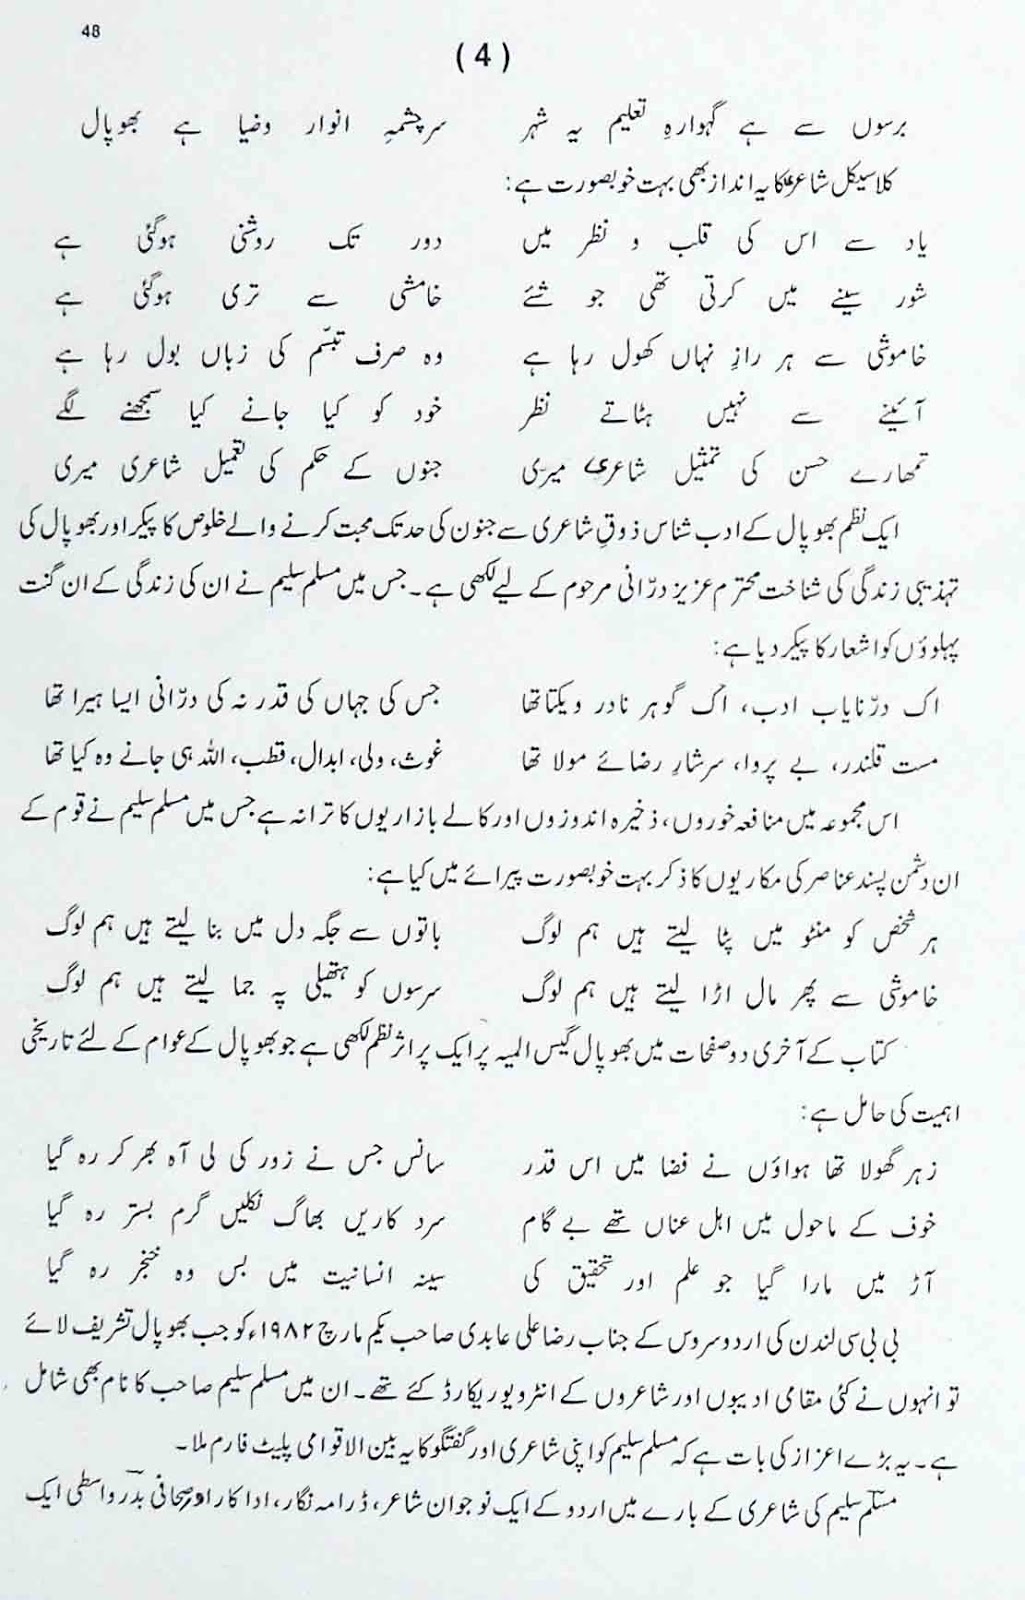 48
(4)
برسوں سے ہے گہوارہِ تعلیم یہ شہر سرچشمہِ انوار وضیا ہے بھوپال
کلاسیکل شاعری کا یہ انداز بھی بہت خوبصورت ہے:
یاد سے اس کی قلب و نظر میں دور تک روشنی ہوگئی ہے
شور سینے میں کرتی تھی جو شئے خامشی سے تری ہوگئی ہے
خاموشی سے ہر رازِ نہاں کھول رہا ہے وہ صرف تبسّم کی زباں بول رہا ہے
آئینے سے نہیں ہٹاتے نظر خود کو کیا جانے کیا سمجھنے لگے
تمھارے حسن کی تمثیل شاعری میری جنوں کے حکم کی تعمیل شاعری میری
ایک نظم بھوپال کے ادب شناس ذوقِ شاعری سے جنون کی حد تک محبت کرنے والے خلوص کا پیکر اور بھوپال کی
تہذیبی زندگی کی شناخت محترم عزیز درّانی مرحوم کے لیے لکھی ہے۔ جس میں مسلم سلیم نے ان کی زندگی کے ان گنت
پہلوؤں کو اشعار کا پیکر دیا ہے:
اک درّ نایاب ادب، اک گوہر نادر ویکتا تھا جس کی جہاں کی قدر نہ کی درّانی ایسا ہیرا تھا
مست قلندر، بے پروا، سرشارِ رضائے مولا تھا غوث، ولی، ابدال، قطب، اللہ ہی جانے وہ کیا تھا
اس مجموعہ میں منافعہ خوروں، ذخیرہ اندوزوں اور کالے بازاریوں کا ترانہ ہے جس میں مسلم سلیم نے قوم کے
ان دشمن پسند عناصر کی مکاریوں کا ذکر بہت خوبصورت پیرائے میں کیا ہے:
ہر شخص کو منٹو میں پٹا لیتے ہیں ہم لوگ باتوں سے جگہ دل میں بنا لیتے ہیں ہم لوگ
خاموشی سے پھر مال اڑا لیتے ہیں ہم لوگ سرسوں کو ہتھیلی پہ جما لیتے ہیں ہم لوگ
کتاب کے آخری دو صفحات میں بھوپال گیس المیہ پر ایک پر اثر نظم لکھی ہے جو بھوپال کے عوام کے لئے تاریخی
اہمیت کی حامل ہے:
زہر گھولا تھا ہواؤں نے فضا میں اس قدر سانس جس نے زور کی لی آہ بھر کر رہ گیا
خوف کے ماحول میں اہل عناں تھے بے گام سرد کاریں بھاگ نکلیں گرم بستر رہ گیا
آڑ میں مارا گیا جو علم اور تحقیق کی سینہ انسانیت میں بس وہ خنجر رہ گیا
بی بی سی لندن کی اردو سروس کے جناب رضا علی عابدی صاحب یکم مارچ ۱۹۸۲ء کو جب بھوپال تشریف لائے
تو انہوں نے کئی مقامی ادیبوں اور شاعروں کے انٹرویو ریکارڈ کئے تھے۔ ان میں مسلم سلیم صاحب کا نام بھی شامل
ہے۔ یہ بڑے اعزاز کی بات ہے کہ مسلم سلیم کو اپنی شاعری اور گفتگو کا یہ بین الاقوامی پلیٹ فارم ملا۔
مسلم سلیم کی شاعری کے بارے میں اردو کے ایک نوجوان شاعر، ڈرامہ نگار، اداکار اور صحافی بدر واسطی ایک